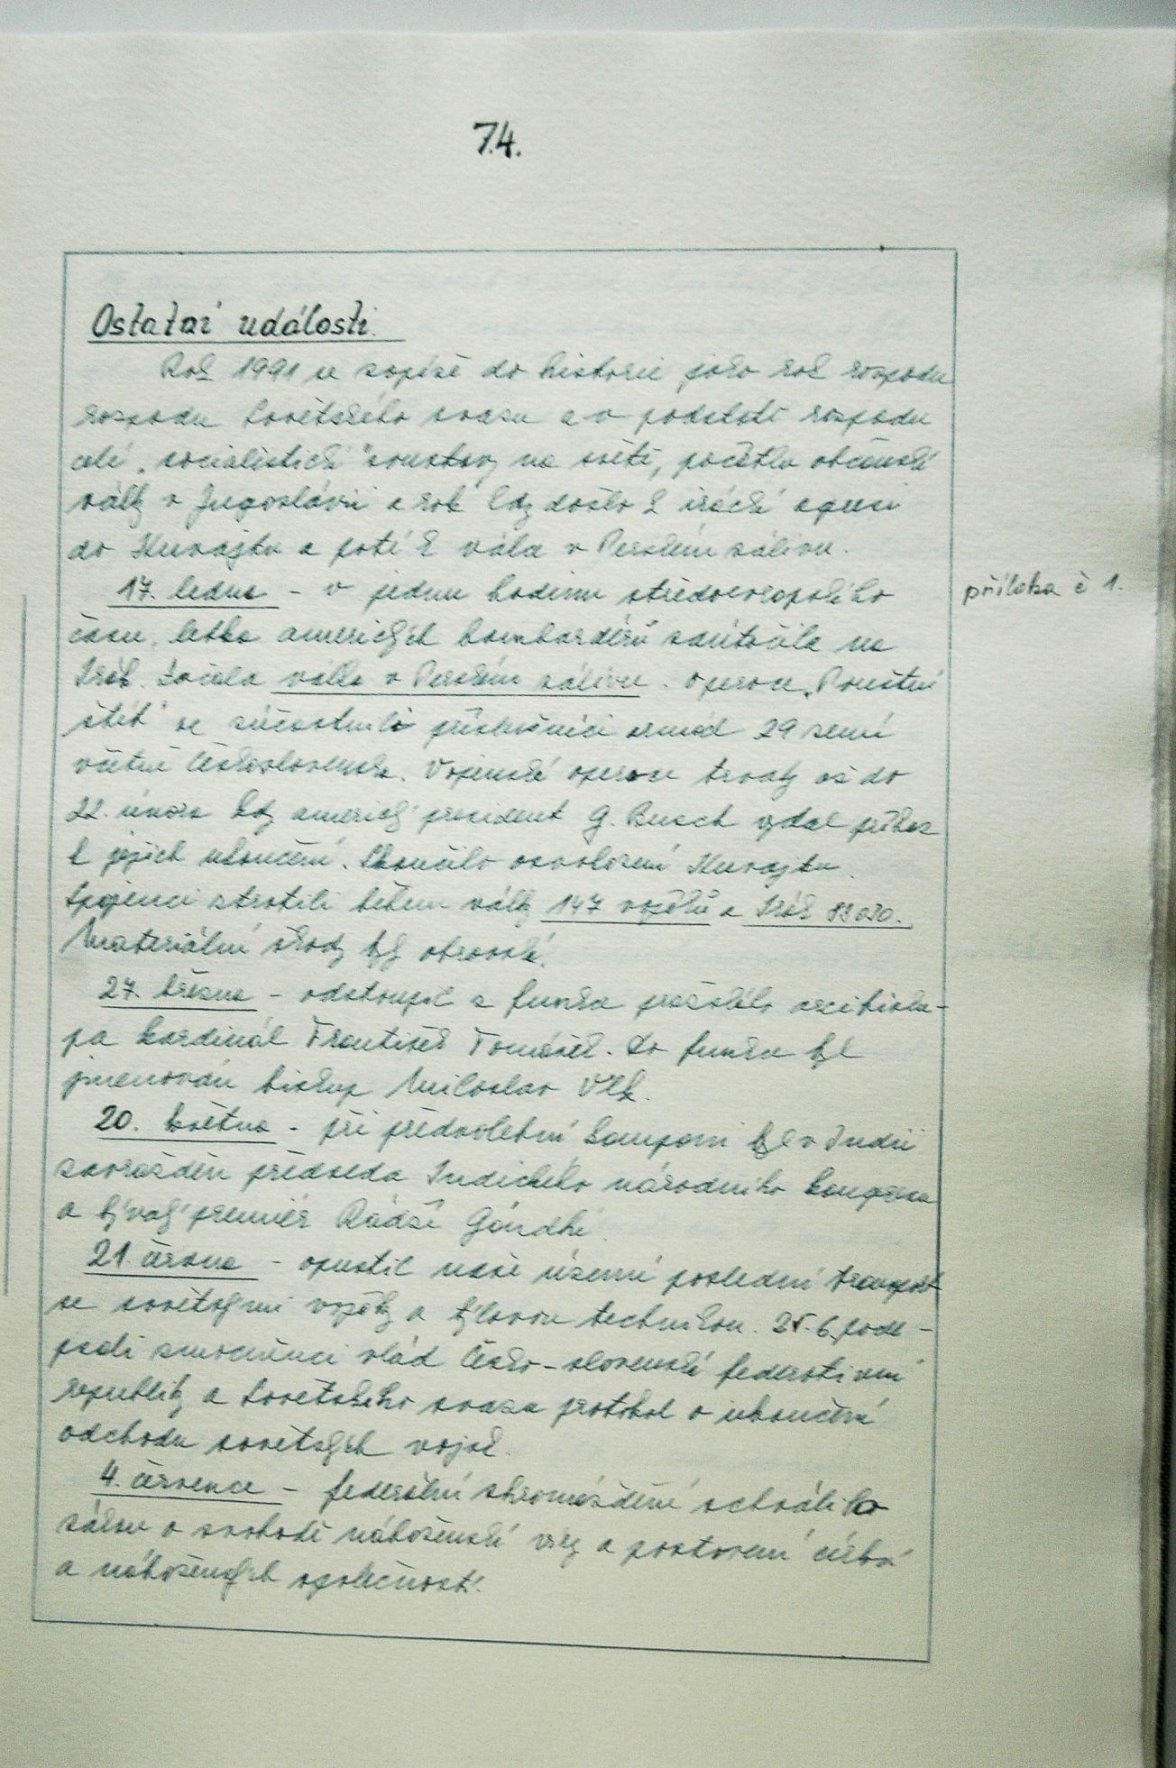 74.
Ostatní události.
Rok 1991 se zapíše do historie jako rok rozpadu
rozpadu Sovětského svazu a v podstatě rozpadu
celé „socialistické" soustavy na světě, počátku občanské
války v Jugoslávii a rok kdy došlo k irácké agresi
do Kuvajtu a poté k válce v Perském zálivu.
17. ledna - v jednu hodinu středoevropského
příloha č 1.
času, letka amerických bombardérů zaútočila na
Irák. Začala válka v Perském zálivu. Operace „Pouštní
štít" se zúčastnili příslušníci armád 29 zemí
včetně Československa. Vojenské operace trvaly až do
22. února kdy americký prezident G. Busch vydal příkaz
k jejich ukončení. Skončilo osvobození Kuvajtu.
Spojenci ztratili během války 147 vojáků a Irák
Materiální škody byly obrovské.
27. března - odstoupil z funkce pražského arcibisku-
pa kardinál František Tomášek. Do funkce byl
jmenován biskup Miloslav Vlk.
20. května - při předvolební kampani byl v Indii
zavražděn předseda Indického národního kongresu
a bývalý premiér Rádží Gándhí.
21. června - opustil naše území poslední transport
se sovětskými vojáky a bojovou technikou. 25.6. pode-
psali zmocněnci vlád Česko-slovenské federativní
republiky a Sovětského svazu protokol o ukončení
odchodu sovětských vojsk.
4. července - federální shromáždění schválilo
zákon o svobodě náboženské víry a postavení církví
a náboženských společností.